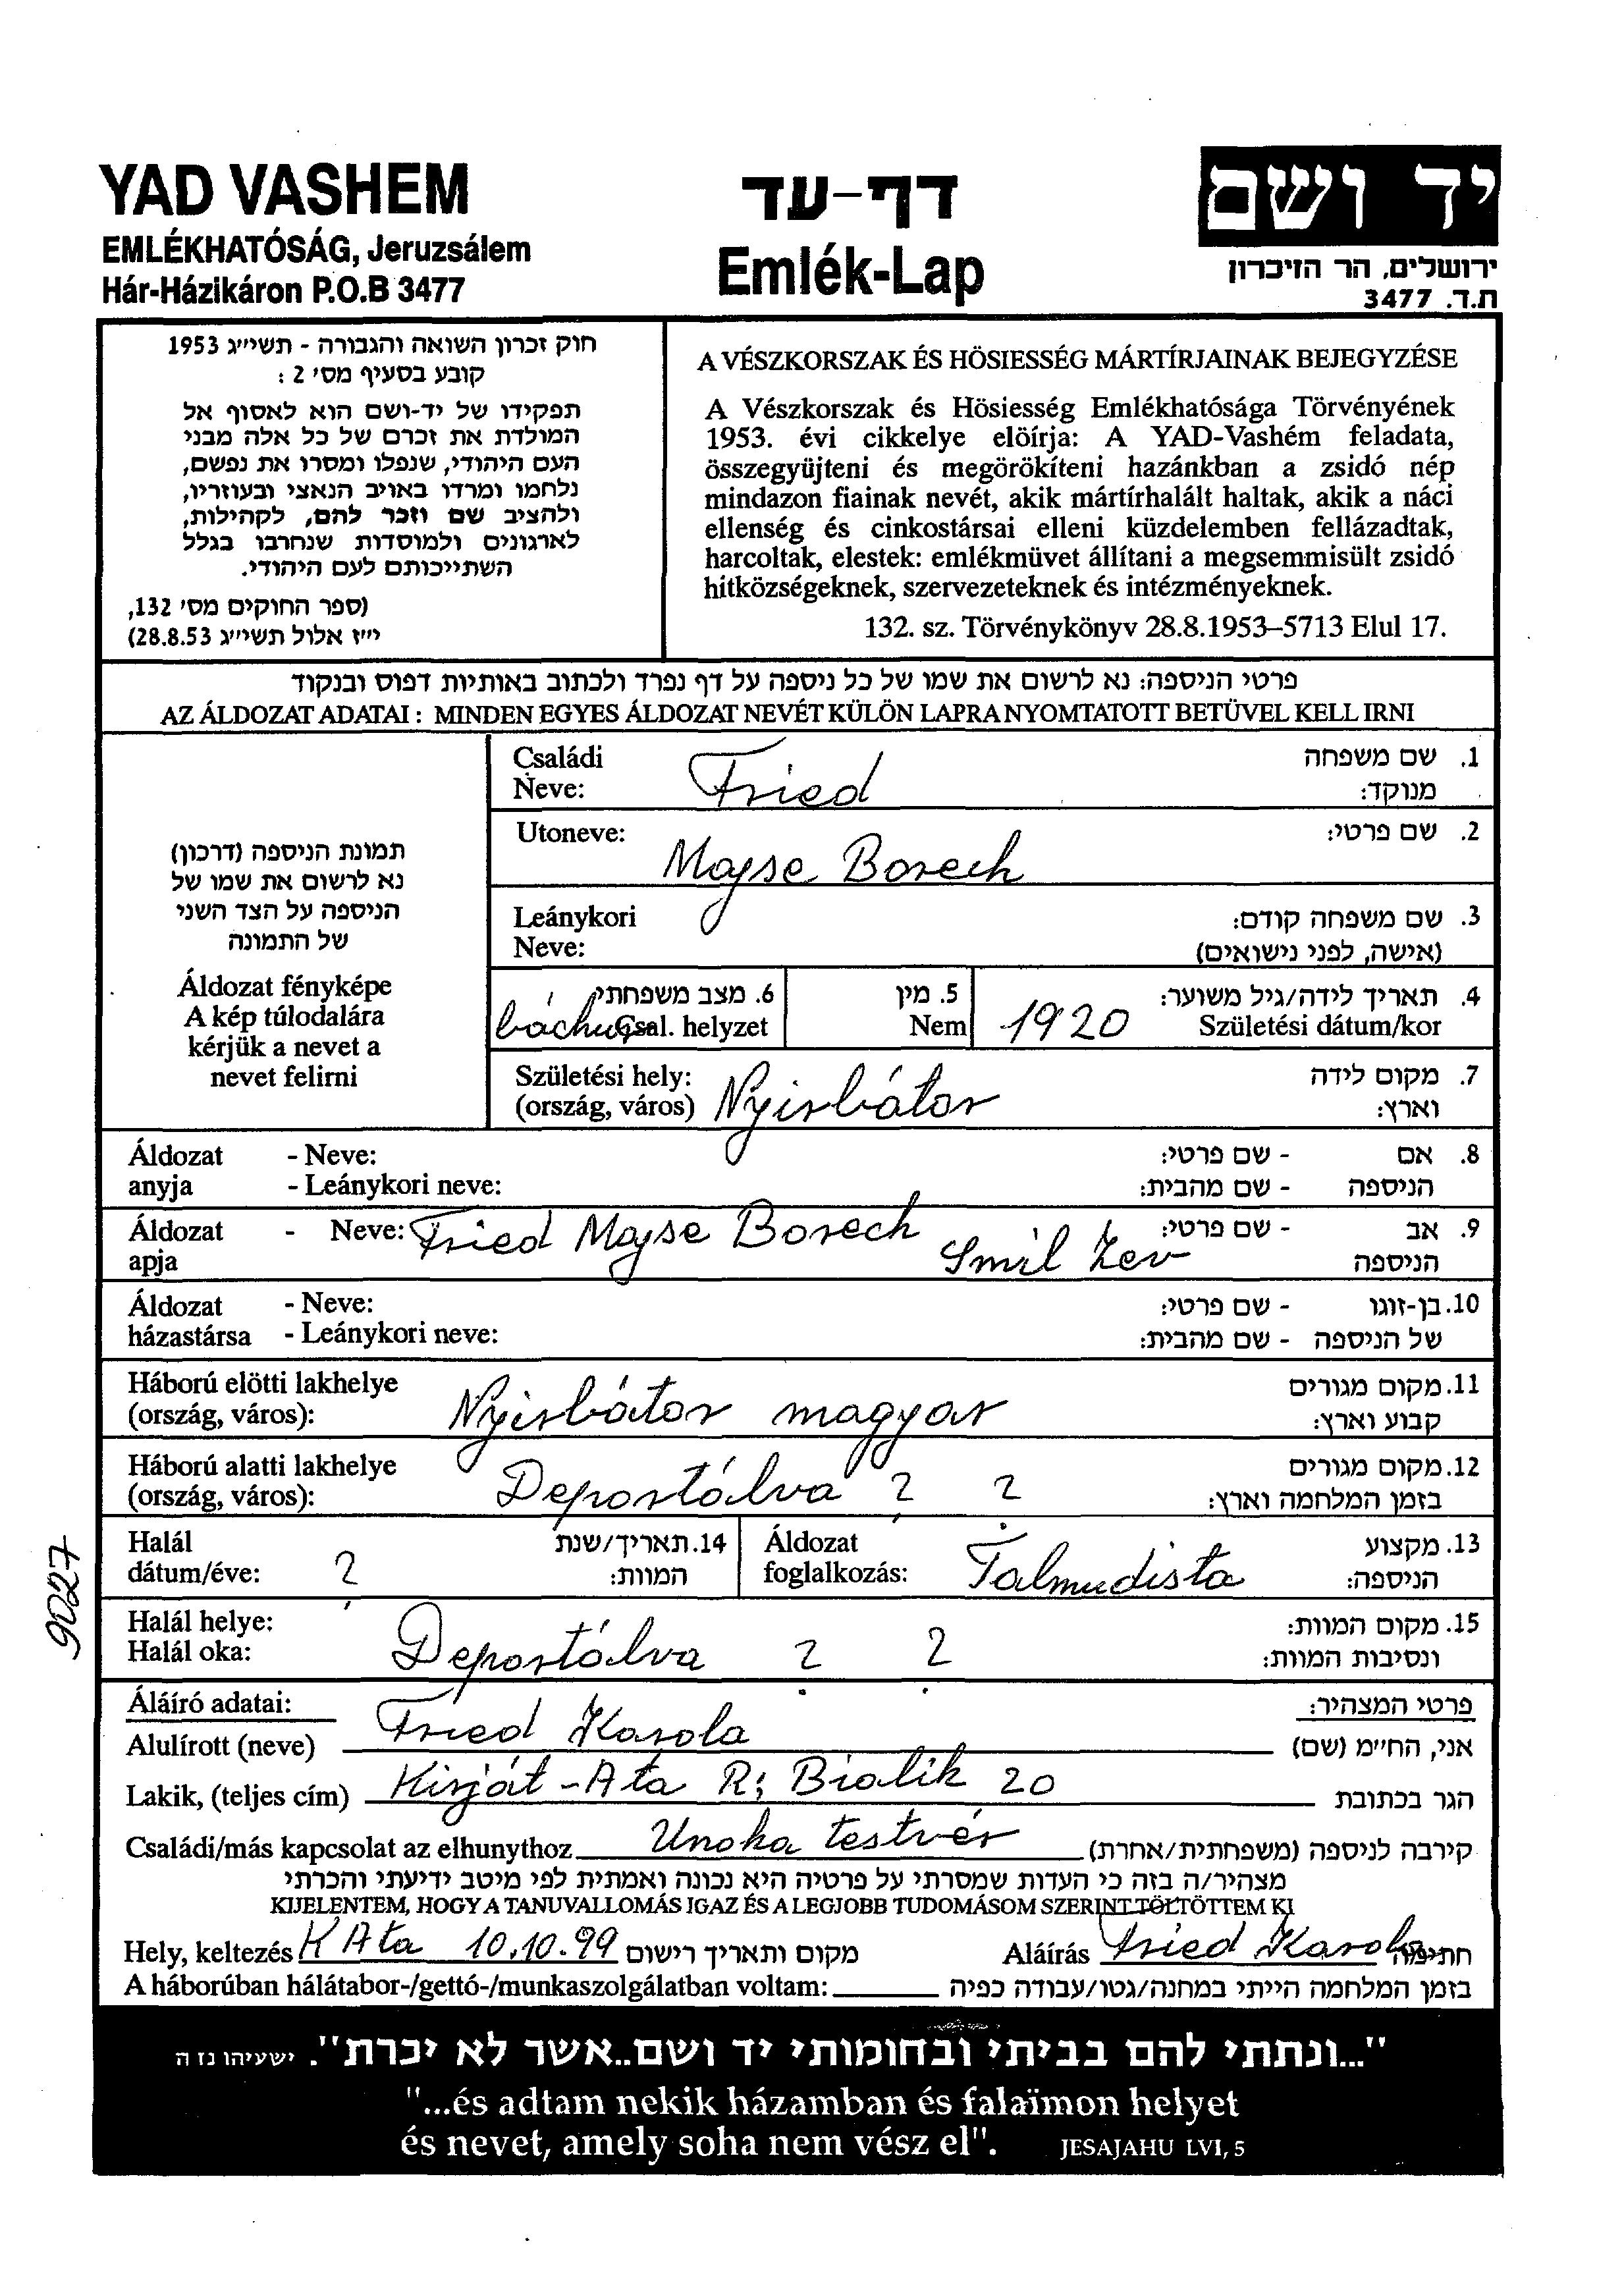 YAD VASHEM
EMLÉKHATÓSÁG, Jeruzsálem
Hár-Házikáron P.O.B 3477
דף-עד
Emlék-Lap
יד ושם
ירושלים, הר הזיכרון
ת.ד. 3477
חוק זכרון השואה והגבורה - תשי״ג 1953
קובע בסעיף מס׳ 2 :
תפקידו של יד-ושם הוא לאסוף אל
המולדת את זכרם של כל אלה מבני
העם היהודי, שנפלו ומסרו את נפשם,
נלחמו ומרדו באויב הנאצי ובעוזריו,
ולהציב שם וזכר להם, לקהילות,
לארגונים ולמוסדות שנחרבו בגלל
השתייכותם לעם היהודי.
(ספר החוקים מס׳ 132,
י״ז אלול תשי״ג 28.8.53)
A VÉSZKORSZAK ÉS HÖSIESSÉG MÁRTÍRJAINAK BEJEGYZÉSE
A Vészkorszak és Hösiesség Emlékhatósága Törvényének
1953. évi cikkelye elöírja: A YAD-Vashém feladata,
összegyüjteni és megörökíteni hazánkban a zsidó nép
mindazon fiainak nevét, akik mártírhalált haltak, akik a náci
ellenség és cinkostársai elleni küzdelemben fellázadtak,
harcoltak, elestek: emlékmüvet állítani a megsemmisült zsidó
hitközségeknek, szervezeteknek és intézményeknek.
132. sz. Törvénykönyv 28.8.1953–5713 Elul 17.
פרטי הניספה: נא לרשום את שמו של כל ניספה על דף נפרד ולכתוב באותיות דפוס ובנקוד
AZ ÁLDOZAT ADATAI : MINDEN EGYES ÁLDOZAT NEVÉT KÜLÖN LAPRA NYOMTATOTT BETÜVEL KELL IRNI
תמונת הניספה (דרכון)
נא לרשום את שמו של
הניספה על הצד השני
של התמונה
Áldozat fényképe
A kép túlodalára
kérjük a nevet a
nevet felirni
Családi Fried 1. שם משפחה
Neve: מנוקד:
Utoneve: Majse Borech 2. שם פרטי:
Leánykori 3. שם משפחה קודם:
Neve: (אישה, לפני נישואים)
6. מצב משפחתי 5. מין 4. תאריך לידה/גיל משוער:
báchur Csal. helyzet Nem 1920 Születési dátum/kor
Születési hely: Nyirbátor 7. מקום לידה
(ország, város) וארץ:
Áldozat - Neve: - שם פרטי: 8. אם
anyja - Leánykori neve: - שם מהבית: הניספה
Áldozat - Neve: Fried Majse Borech Smil Zev - שם פרטי: 9. אב
apja הניספה
Áldozat - Neve: - שם פרטי: 10. בן-זוגו
házastársa - Leánykori neve: - שם מהבית: של הניספה
Háború elötti lakhelye Nyirbátor magyar 11. מקום מגורים
(ország, város): קבוע וארץ:
Háború alatti lakhelye Deportálva ? ? 12. מקום מגורים
(ország, város): בזמן המלחמה וארץ:
Halál 14. תאריך/שנת Áldozat Talmudista 13. מקצוע
dátum/éve: ? המוות: foglalkozás: הניספה:
Halál helye: Deportálva ? ? 15. מקום המוות:
Halál oka: ונסיבות המוות:
9027
Áláíró adatai: פרטי המצהיר:
Alulírott (neve) Fried Karola אני, הח״מ (שם)
Lakik, (teljes cím) Kirját-Ata R; Bialik 20 הגר בכתובת
Családi/más kapcsolat az elhunythoz Unoka testvér קירבה לניספה (משפחתית/אחרת)
מצהיר/ה בזה כי העדות שמסרתי על פרטיה היא נכונה ואמתית לפי מיטב ידיעתי והכרתי
KIJELENTEM, HOGY A TANUVALLOMÁS IGAZ ÉS A LEGJOBB TUDOMÁSOM SZERINT TÖLTÖTTEM KI
Hely, keltezés K Ata 10.10.99 מקום ותאריך רישום Aláírás Fried Karola חתימה
A háborúban hálátabor-/gettó-/munkaszolgálatban voltam: בזמן המלחמה הייתי במחנה/גטו/עבודה כפיה
"...ונתתי להם בביתי ובחומותי יד ושם..אשר לא יכרת". ישעיהו נז ה
"...és adtam nekik házamban és falaïmon helyet
és nevet, amely soha nem vész el". JESAJAHU LVI, 5